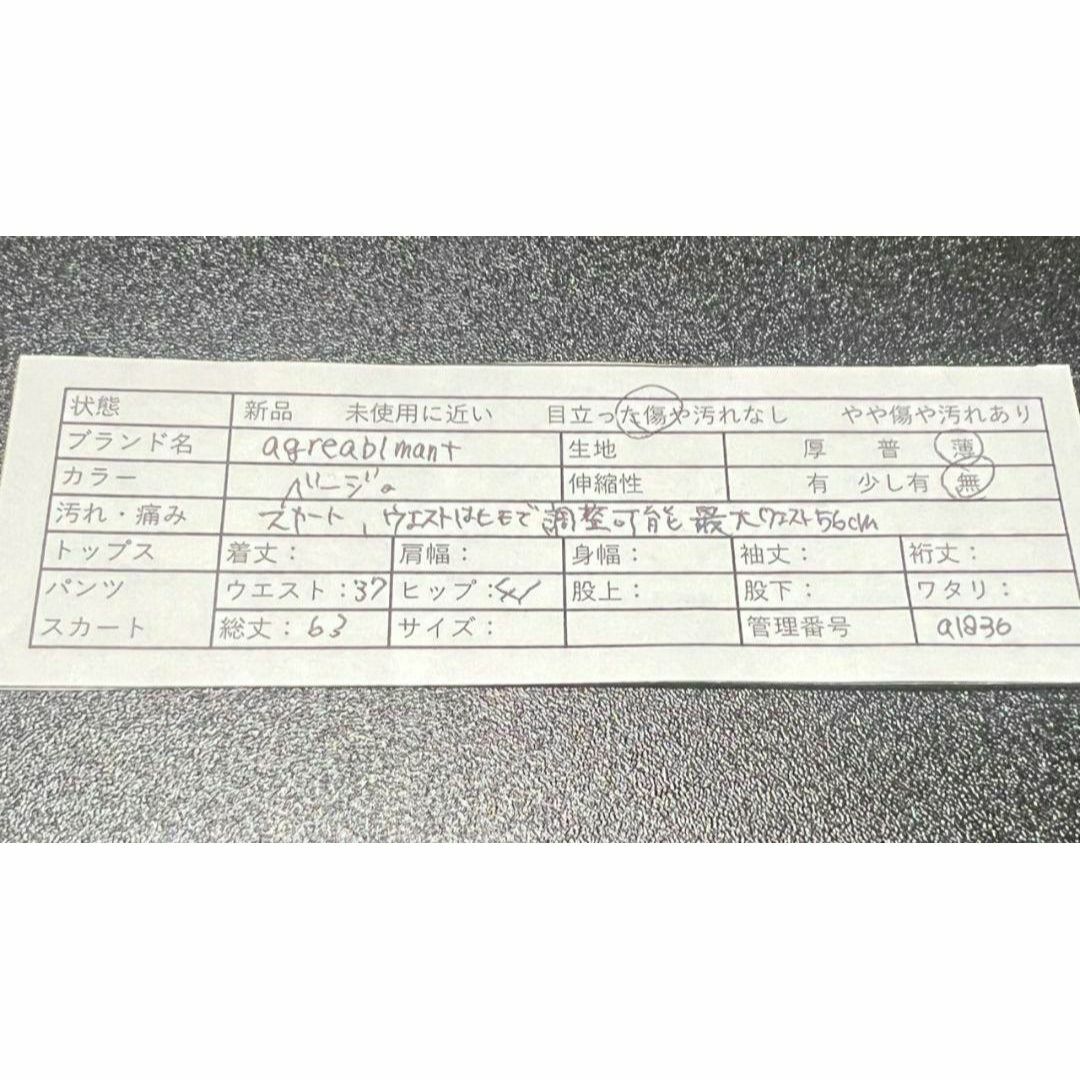 状態 新品 未使用に近い 目立った傷や汚れなし やや傷や汚れあり
ブランド名 agreablmant 生地 厚 普 薄
カラー ベージュ 伸縮性 有 少し有 無
汚れ・痛み スカート、ウエストはヒモで調整可能 最大ウエスト56cm
トップス 着丈: 肩幅: 身幅: 袖丈: 裄丈:
パンツ ウエスト:37 ヒップ: 股上: 股下: ワタリ:
スカート 総丈:63 サイズ: 管理番号 a1836